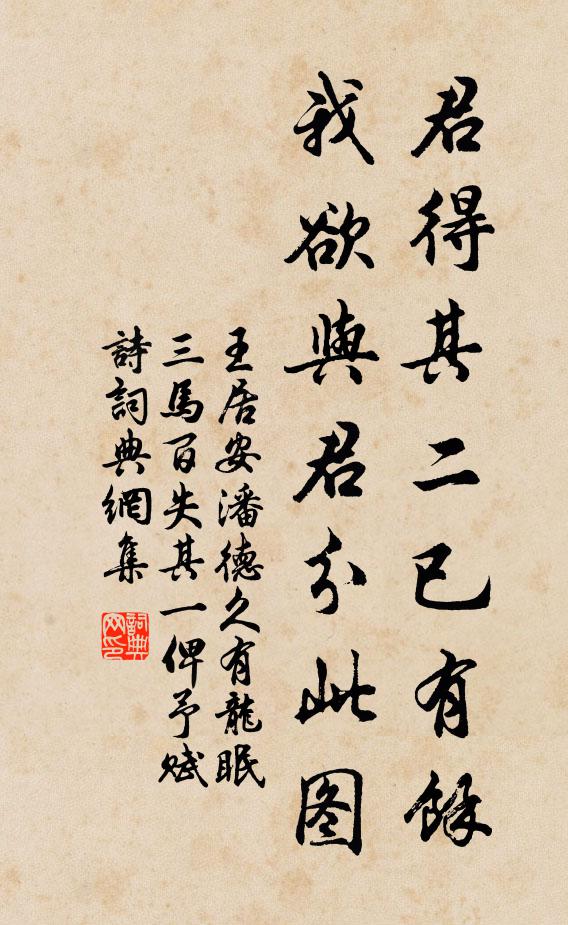 君得其二已有餘
我欲與君分此图
王居安潘德久有龍眠
三馬百失其一俾予赋
詩詞典網集
詞典网印